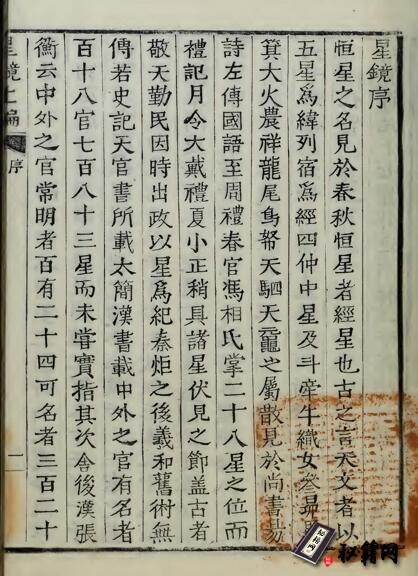 星鏡序
恒星之名見於春秋恒星者經星也古之言天文者以
五星爲緯列宿爲經四仲中星及斗牽牛織女參昴
箕大火農祥龍尾鳥帑天駟天黿之屬散見於尚書易
詩左傳國語至周禮春官馮相氏掌二十八星之位而
禮記月令大戴禮夏小正稍具諸星伏見之節蓋古者
敬天勤民因時出政以星爲紀秦炬之後羲和舊術無
傳若史記天官書所載太簡漢書載中外之官有名者
百十八官七百八十三星而未嘗實指其次舍後漢張
衡云中外之官常明者百有二十四可名者三百二十
星鏡上編
序
一
秘籍网
秘籍网